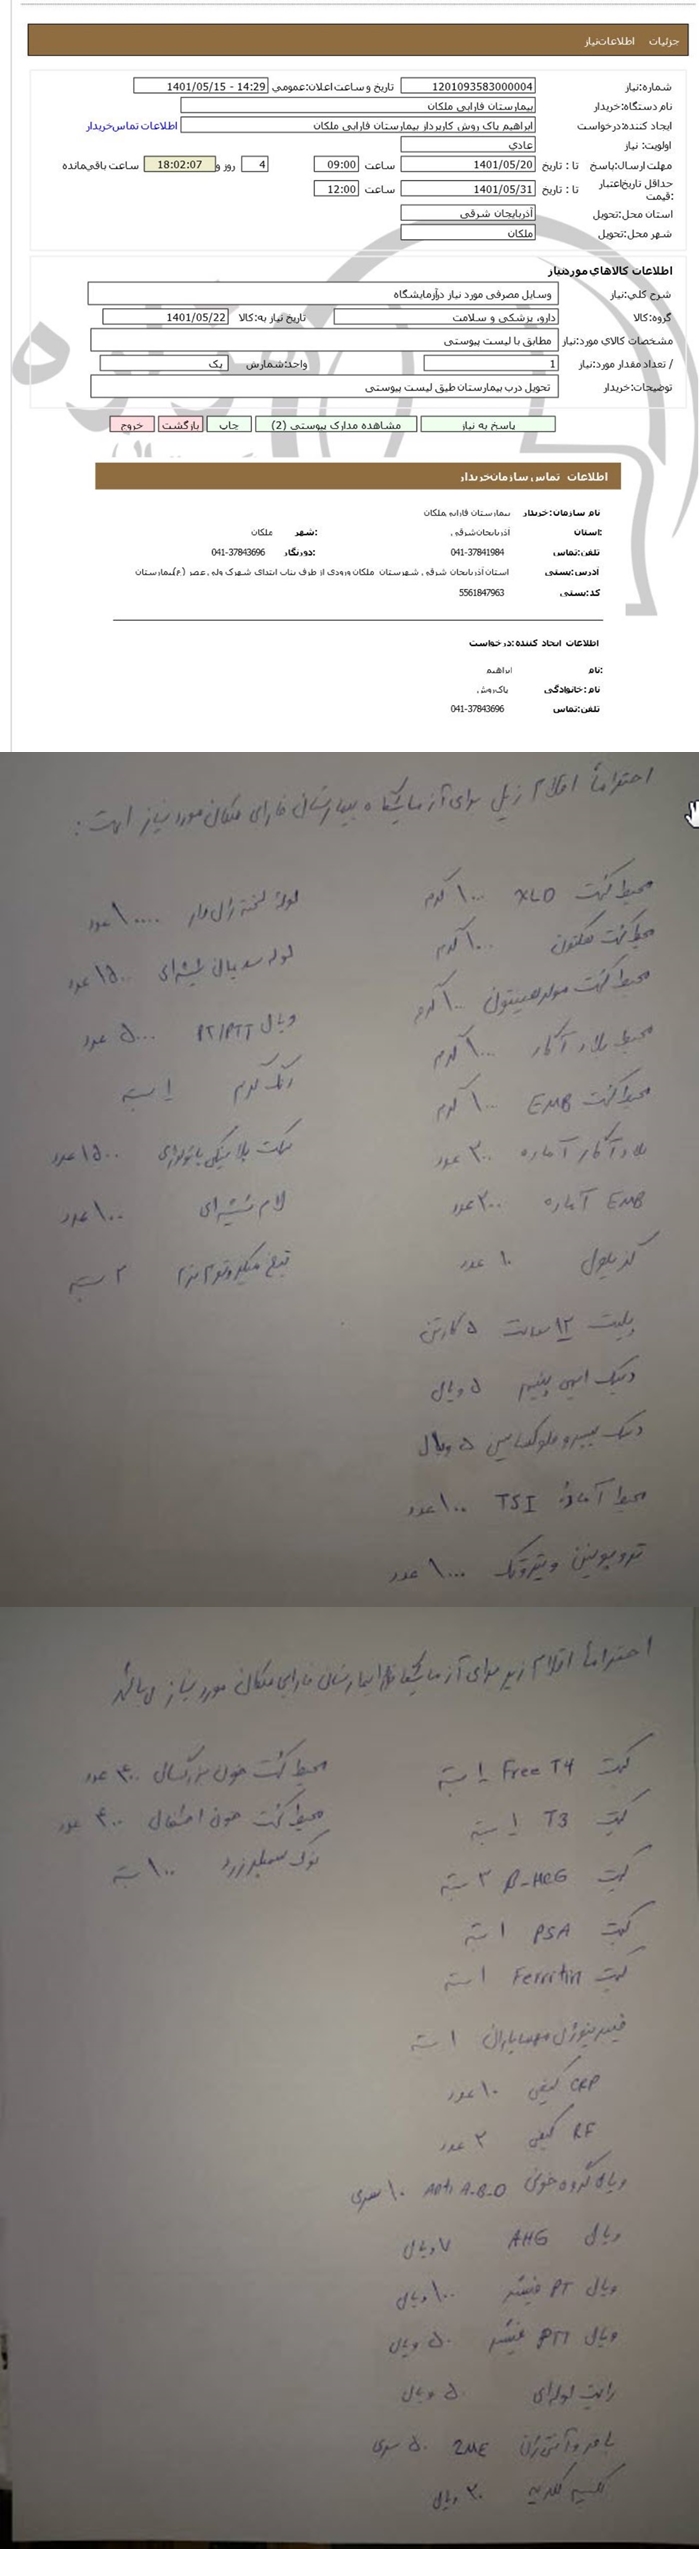 جزئیات اطلاعات نیاز
شماره نیاز: 1201093583000004 تاریخ و ساعت اعلان عمومی: 1401/05/15 - 14:29
نام دستگاه خریدار: بیمارستان فارابی ملکان
ایجاد کننده درخواست: ابراهیم پاک روش کارپرداز بیمارستان فارابی ملکان اطلاعات تماس خریدار
اولویت نیاز: عادي
مهلت ارسال پاسخ: تا تاریخ: 1401/05/20 ساعت 09:00 4 روز و 18:02:07 ساعت باقی‌مانده
حداقل تاریخ اعتبار قیمت: تا تاریخ: 1401/05/31 ساعت 12:00
استان محل تحویل: آذربایجان شرقی
شهر محل تحویل: ملکان
اطلاعات کالاهاي مورد نیاز
شرح کلي نیاز: وسایل مصرفی مورد نیاز درآزمایشگاه
گروه کالا: دارو، پزشکی و سلامت تاریخ نیاز به کالا: 1401/05/22
مشخصات کالاي مورد نیاز: مطابق با لیست پیوستی
تعداد / مقدار مورد نیاز: 1 واحد شمارش: پک
توضیحات خریدار: تحویل درب بیمارستان طبق لیست پیوستی
پاسخ به نیاز مشاهده مدارک پیوستی (2) چاپ بازگشت خروج
اطلاعات تماس سازمان خریدار
نام سازمان خریدار: بیمارستان فارابی ملکان
استان: آذربایجان شرقی شهر: ملکان
تلفن تماس: 041-37841984 دورنگار: 041-37843696
آدرس پستی: استان آذربایجان شرقی، شهرستان ملکان ورودی از طرف بناب ابتدای شهرک ولی عصر (ع) بیمارستان
کد پستی: 5561847963
اطلاعات ایجاد کننده درخواست:
نام: ابراهیم
نام خانوادگی: پاک روش
تلفن تماس: 041-37843696
احتراماً اقلام زیل برای آزمایشگاه بیمارستان فارابی ملکان مورد نیاز است :
محیط کشت XLD ۱۰۰۰ گرم
محیط کشت ۱۰۰۰ گرم
محیط کشت مولرهینتون ۱۰۰۰ گرم
محیط بلاد آگار ۱۰۰۰ گرم
محیط کشت EMB ۱۰۰۰ گرم
بلاد آگار آماده ۳۰۰ عدد
EMB آماده ۲۰۰ عدد
۱۰ عدد
پلیت ۱۲ سانت ۵ کارتن
دیسک ایمی پنیم ۵ ویال
دیسک سیپروفلوکساسین ۵ ویال
محیط آماده TSI ۱۰۰ عدد
تروپونین ویتروتک ۱۰۰۰ عدد
لوله لخته ژل دار ۱۰۰۰۰ عدد
لوله سدیمان شیشه‌ای ۱۵۰۰ عدد
ویال PT/PTT ۵۰۰۰ عدد
رنگ گرم ۱ بسته
بسکت پلاستیکی پاتولوژی ۱۵۰۰ عدد
لام شیشه‌ای ۱۰۰۰ عدد
تیغ میکروتوم ۲ بسته
احتراماً اقلام زیر برای آزمایشگاه بیمارستان فارابی ملکان مورد نیاز میباشد
کیت Free T4 ۱ بسته
کیت T3 ۱ بسته
کیت β-HCG ۲ بسته
کیت PSA ۱ بسته
کیت Ferritin ۱ بسته
فیبرینوژن مهسایاران ۱ بسته
CRP کیفی ۱۰ عدد
RF کیفی ۲ عدد
ویال گروه خونی Anti A-B-D ۱۰ سری
ویال AHG ۷ ویال
ویال PT فیشر ۱۰۰ ویال
ویال PTT فیشر ۵۰ ویال
رایت لوله‌ای ۵۰ ویال
بافر و آنتی ژن 2ME ۵۰ سری
کلسیم کلراید ۲۰ ویال
محیط کشت خون بزرگسال ۴۰۰ عدد
محیط کشت خون اطفال ۴۰۰ عدد
نوک سمپلر زرد ۱۰۰ بسته